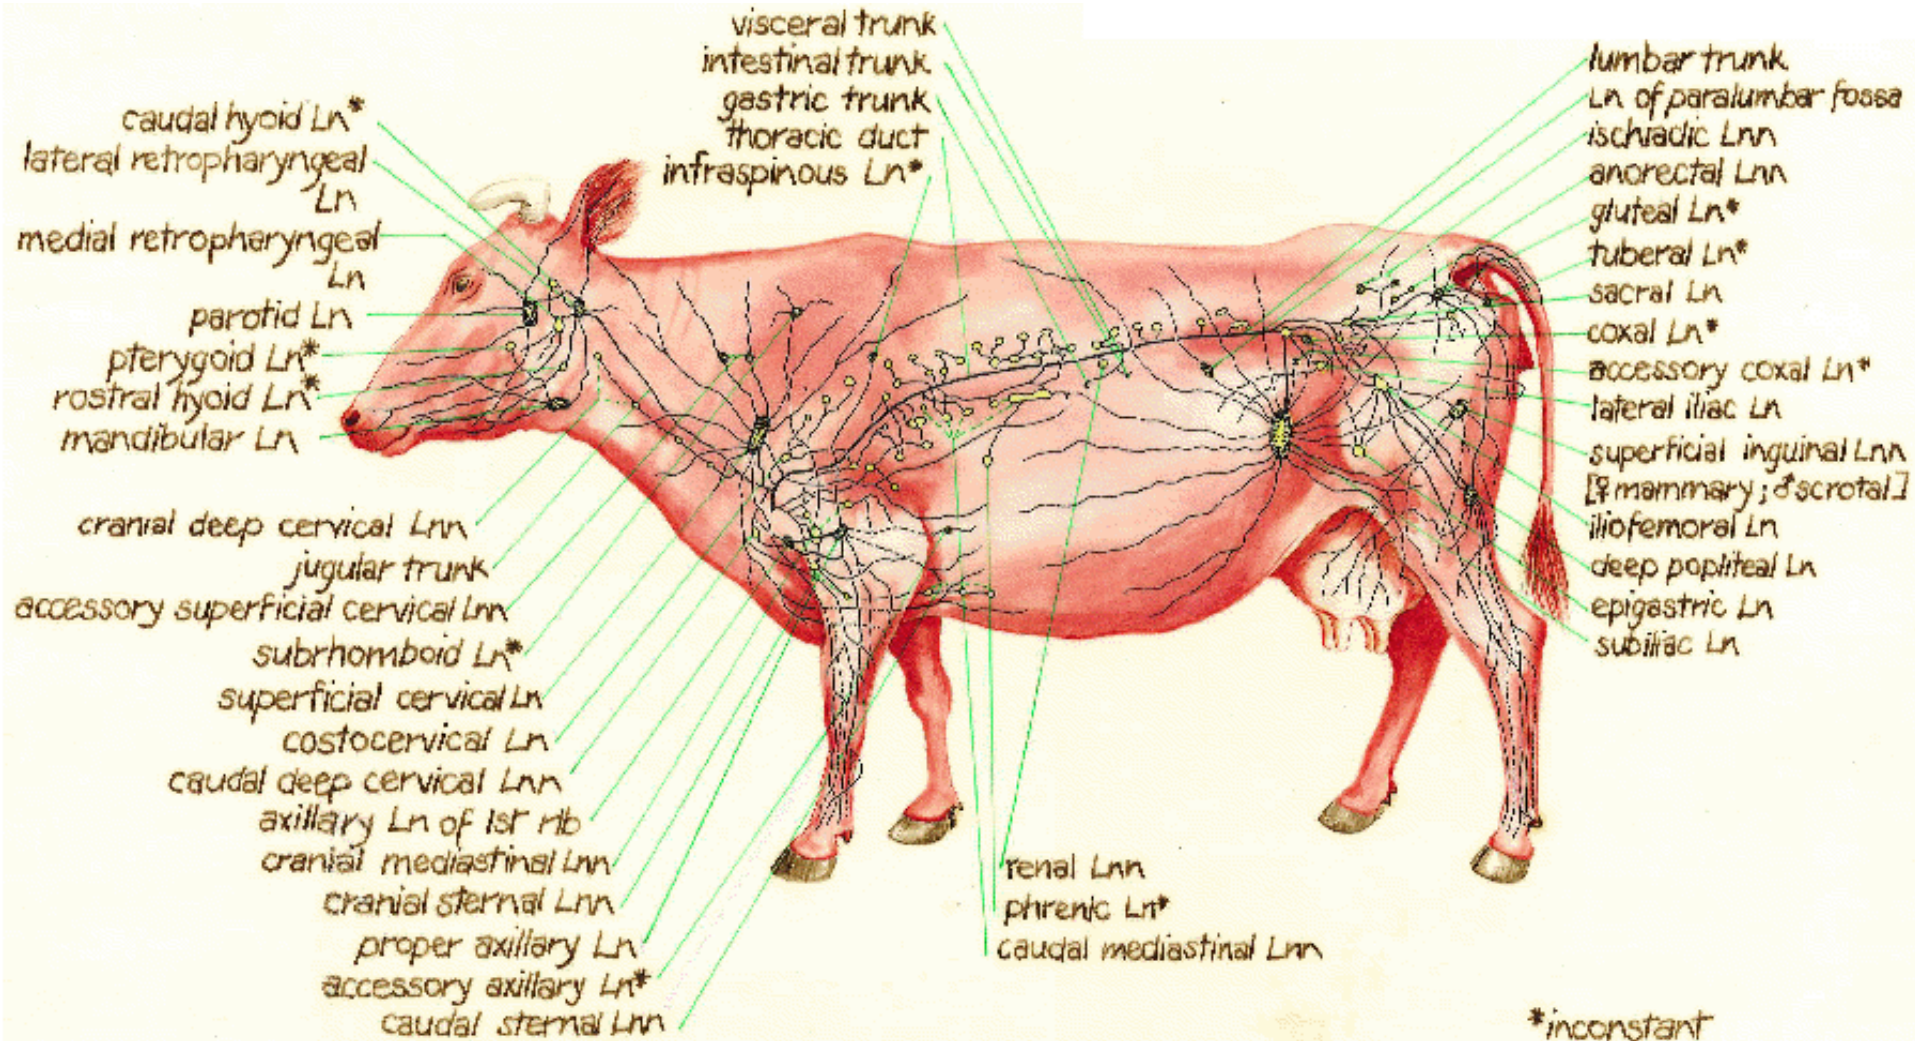 visceral trunk
intestinal trunk
gastric trunk
thoracic duct
infraspinous Ln*
caudal hyoid Ln*
lateral retropharyngeal
Ln
medial retropharyngeal
Ln
parotid Ln
pterygoid Ln*
rostral hyoid Ln*
mandibular Ln
cranial deep cervical Lnn
jugular trunk
accessory superficial cervical Lnn
subrhomboid Ln*
superficial cervical Ln
costocervical Ln
caudal deep cervical Lnn
axillary Ln of 1st rib
cranial mediastinal Lnn
cranial sternal Lnn
proper axillary Ln
accessory axillary Ln*
caudal sternal Lnn
renal Lnn
phrenic Ln*
caudal mediastinal Lnn
lumbar trunk
Ln of paralumbar fossa
ischiadic Lnn
anorectal Lnn
gluteal Ln*
tuberal Ln*
sacral Ln
coxal Ln*
accessory coxal Ln*
lateral iliac Ln
superficial inguinal Lnn
[♀mammary; ♂scrotal]
iliofemoral Ln
deep popliteal Ln
epigastric Ln
subiliac Ln
*inconstant